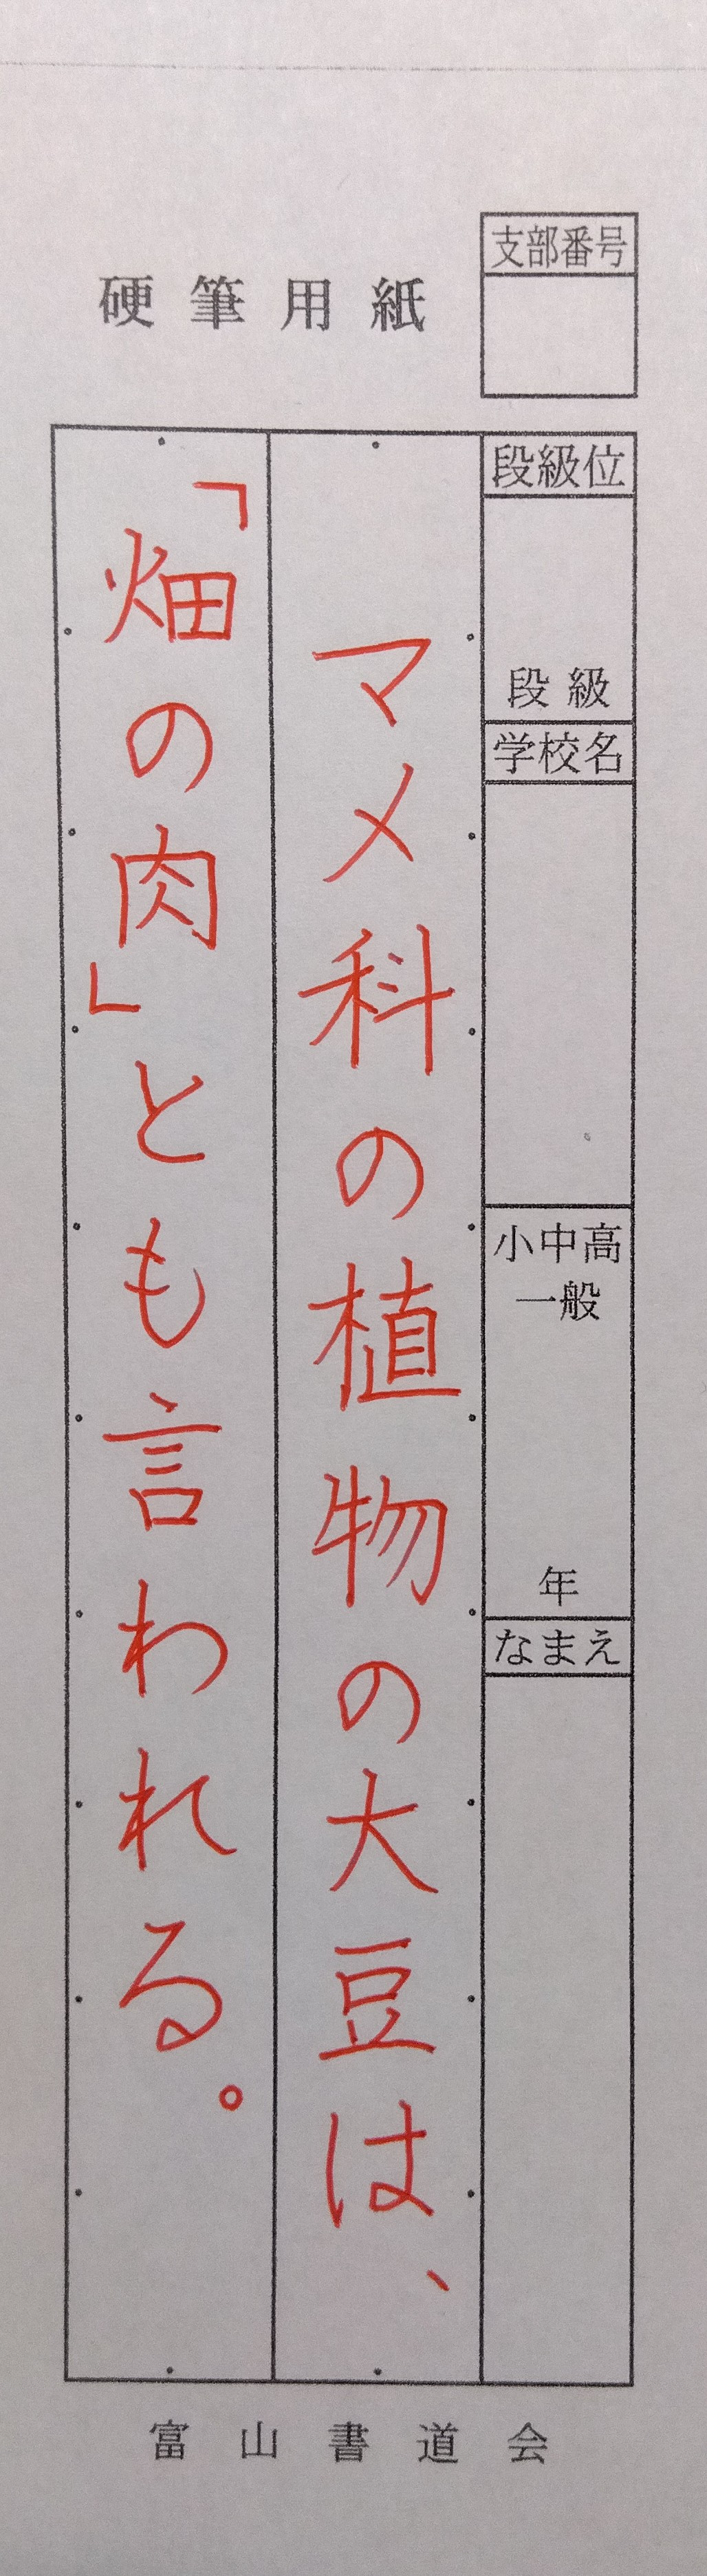 硬筆用紙
支部番号
段級位
段級
学校名
小中高
一般
年
なまえ
マメ科の植物の大豆は、
「畑の肉」とも言われる。
富山書道会